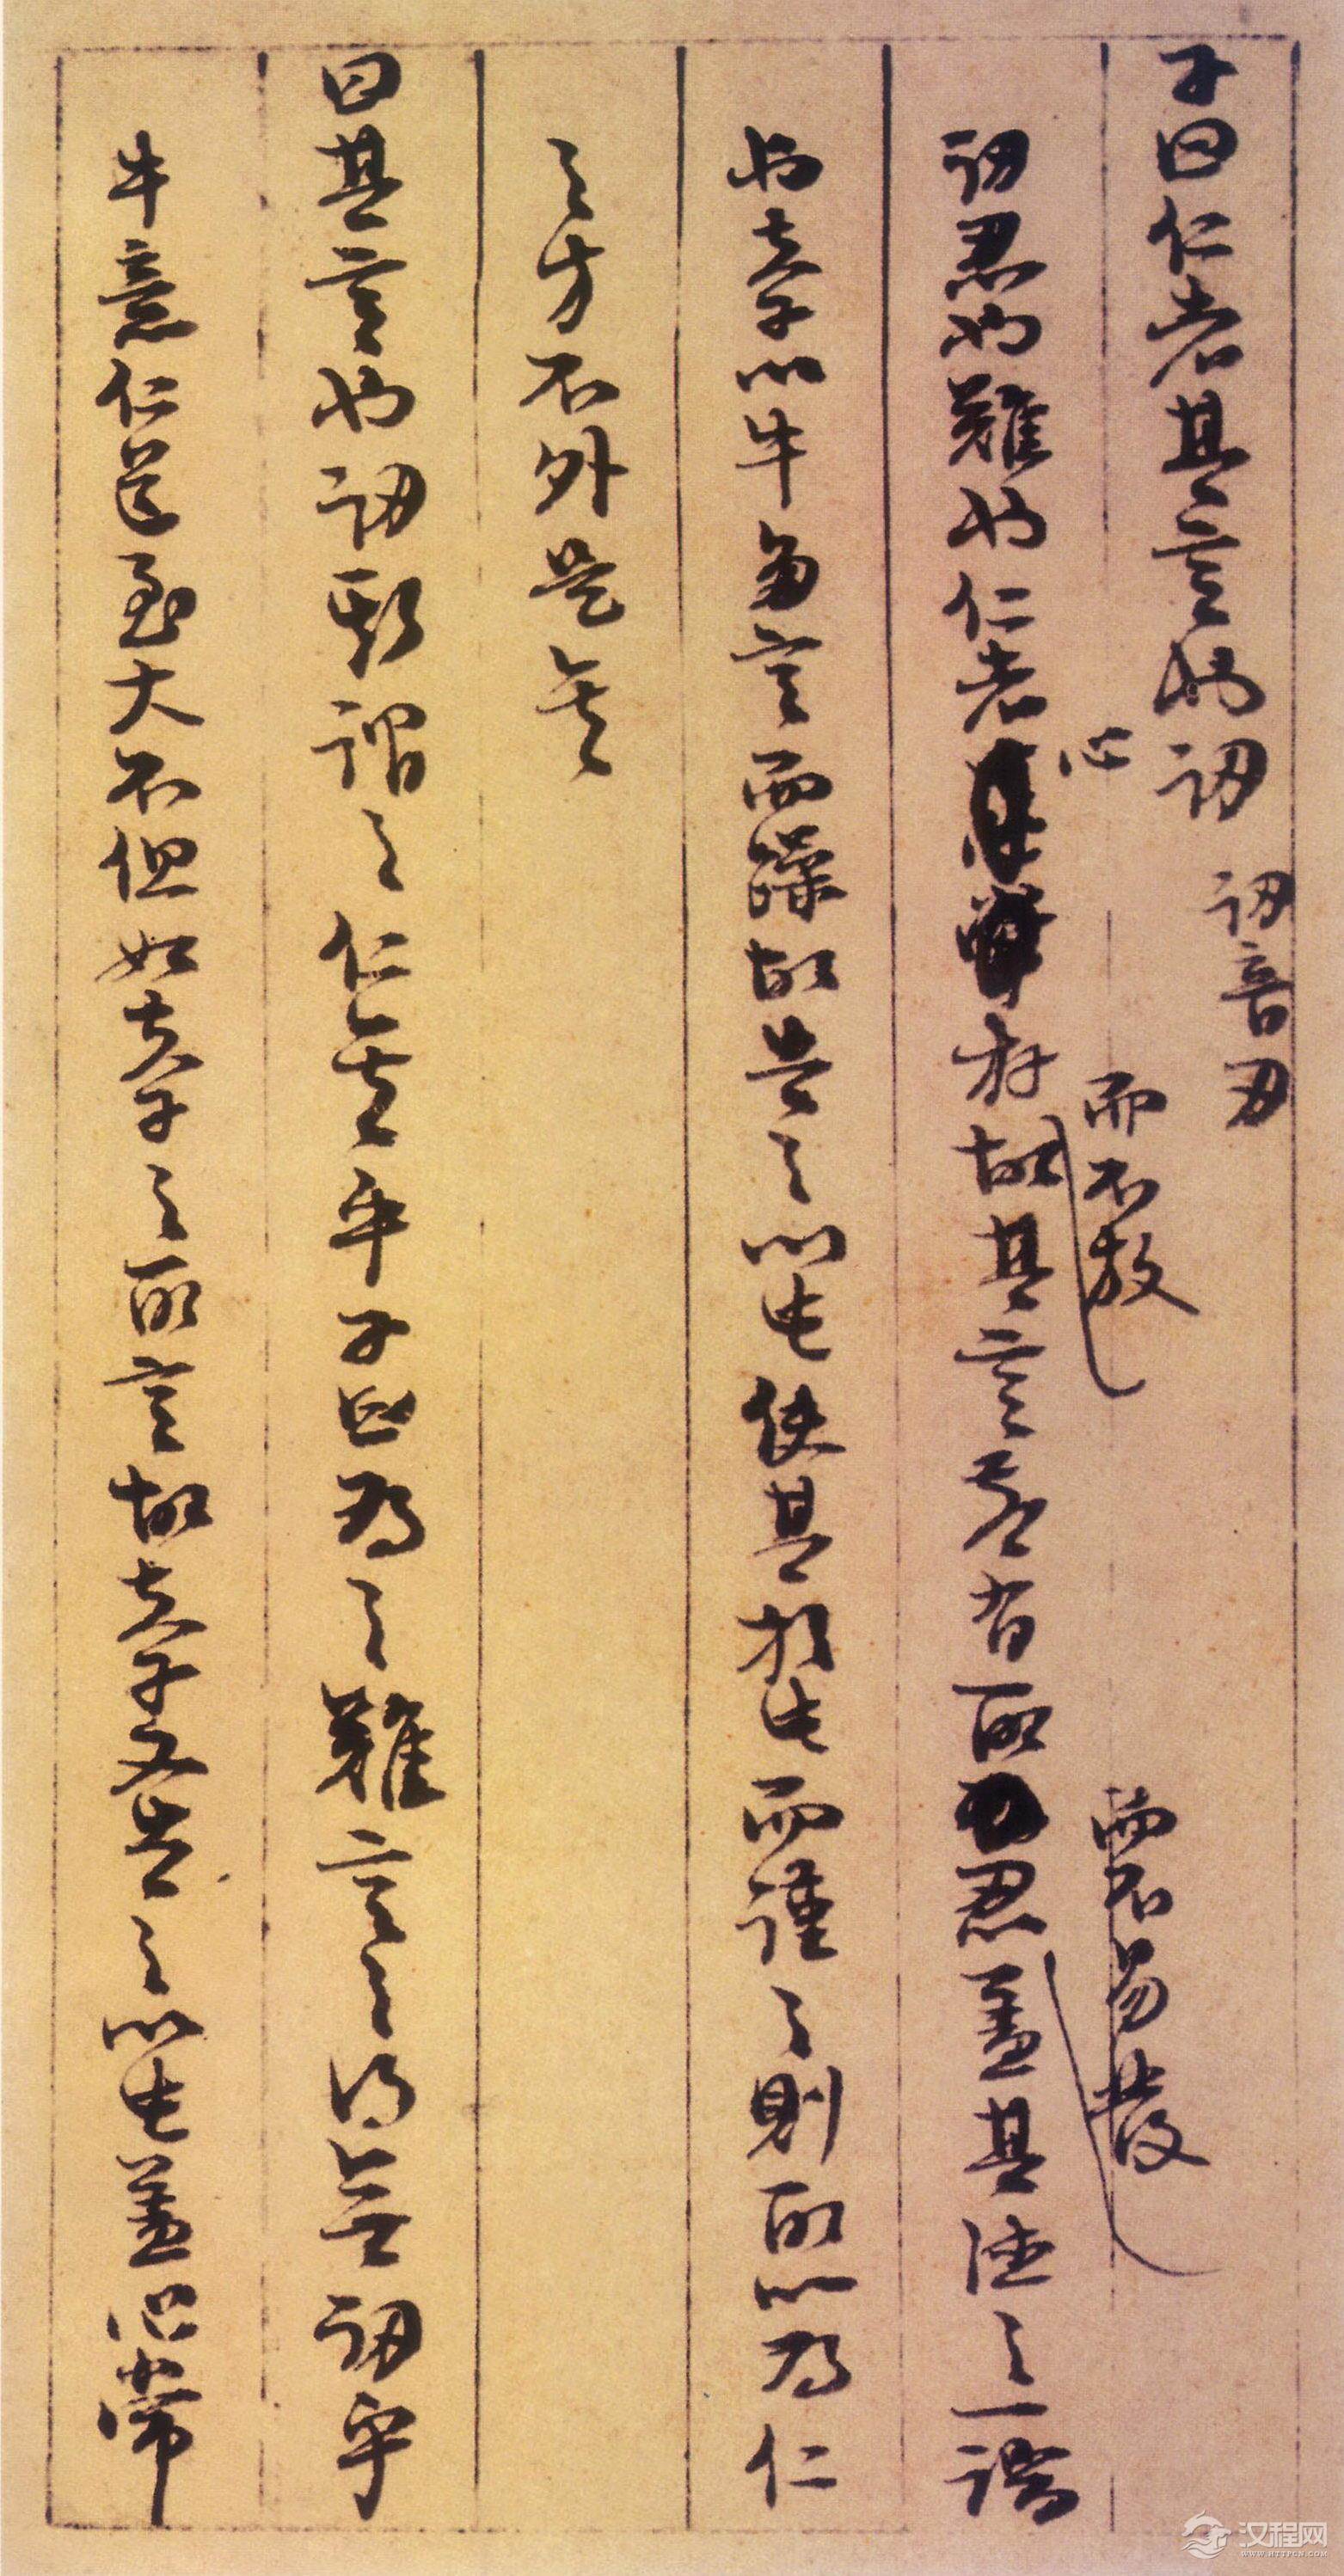 子曰仁者其言也訒 訒音刃
心 而不放 而不易發
訒忍也難也仁者存故其言若有所忍蓋其德之一端
也夫子以牛多言而躁故告之以此使其於此而謹之則所以為仁
之方不外是矣
曰其言也訒斯謂之仁矣乎子曰為之難言之得無訒乎
牛意仁道至大不但如夫子之所言故夫子又告之以此蓋心常
汉程网
WWW.HTTPCN.COM